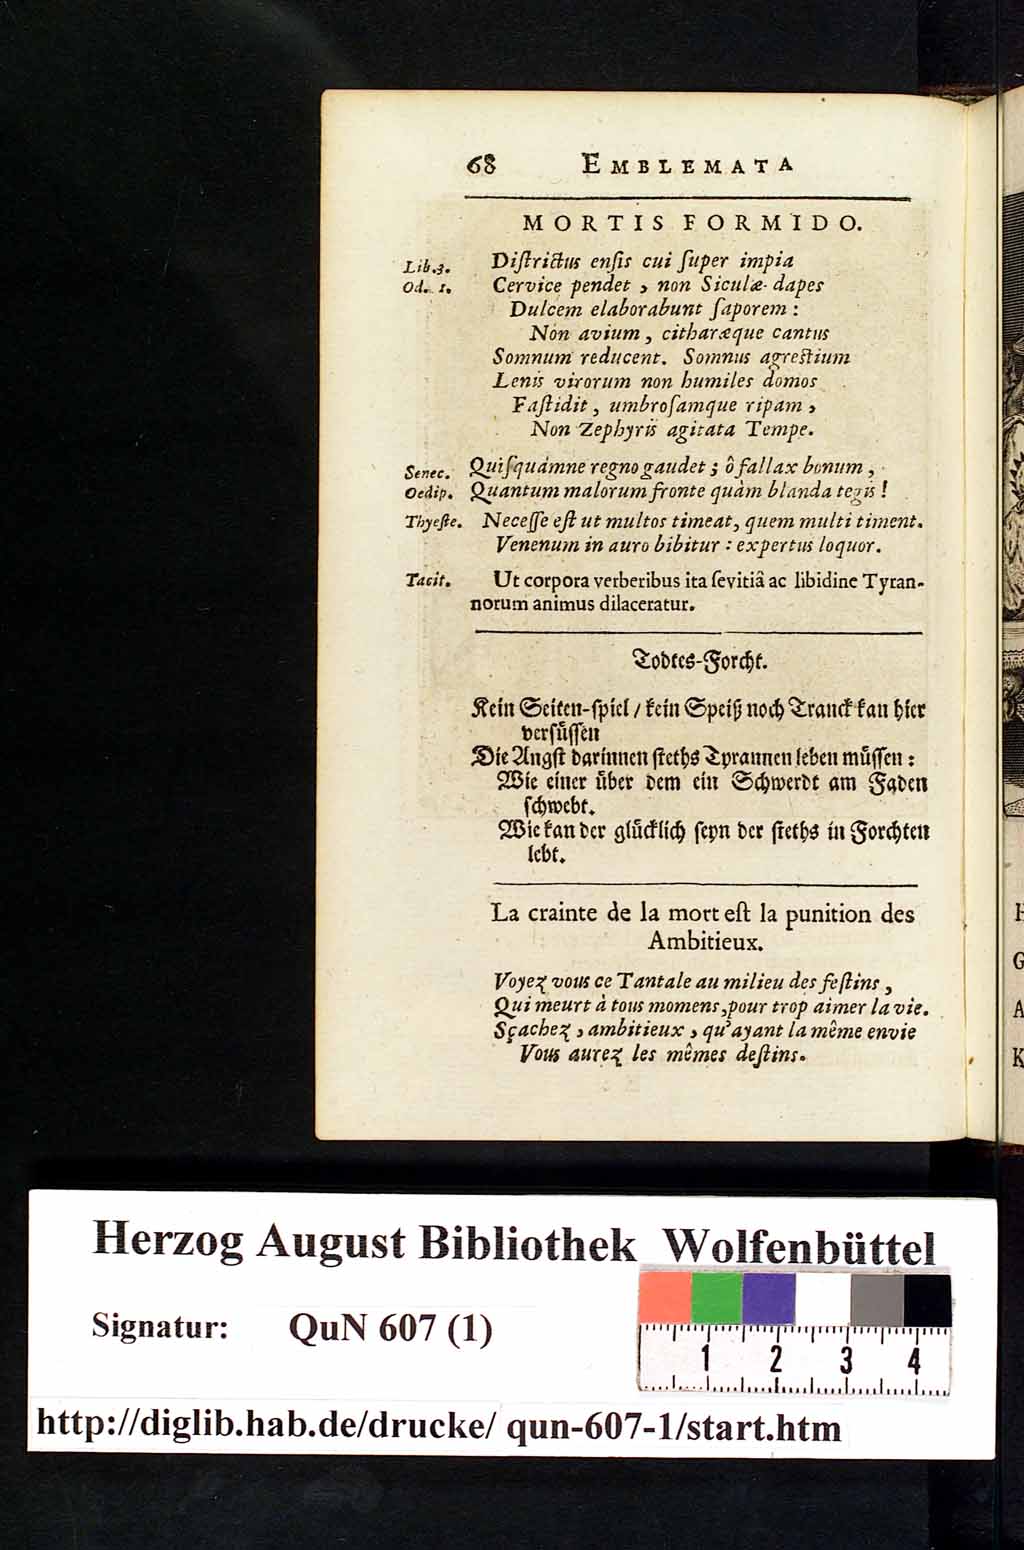 68 EMBLEMATA
MORTIS FORMIDO.
Lib.3. Diſtrictus enſis cui ſuper impia
Od. 1. Cervice pendet, non Siculæ dapes
Dulcem elaborabunt ſaporem:
Non avium, citharæque cantus
Somnum reducent. Somnus agreſtium
Lenis virorum non humiles domos
Faſtidit, umbroſamque ripam,
Non Zephyris agitata Tempe.
Senec. Quiſquámne regno gaudet; ô fallax bonum,
Oedip. Quantum malorum fronte quàm blanda tegis!
Thyeſte. Neceſſe eſt ut multos timeat, quem multi timent.
Venenum in auro bibitur: expertus loquor.
Tacit. Ut corpora verberibus ita ſevitiâ ac libidine Tyran-
norum animus dilaceratur.
Todtes-Forcht.
Kein Seiten-ſpiel / kein Speiß noch Tranck kan hier
verſüſſen
Die Angſt darinnen ſteths Tyrannen leben müſſen:
Wie einer über dem ein Schwerdt am Faden
ſchwebt.
Wie kan der glücklich ſeyn der ſteths in Forchten
lebt.
La crainte de la mort eſt la punition des
Ambitieux.
Voyez vous ce Tantale au milieu des feſtins,
Qui meurt à tous momens, pour trop aimer la vie.
Sçachez, ambitieux, qu'ayant la même envie
Vous aurez les mêmes deſtins.
H
G
A
K
Herzog August Bibliothek Wolfenbüttel
Signatur: QuN 607 (1)
1 2 3 4
http://diglib.hab.de/drucke/ qun-607-1/start.htm